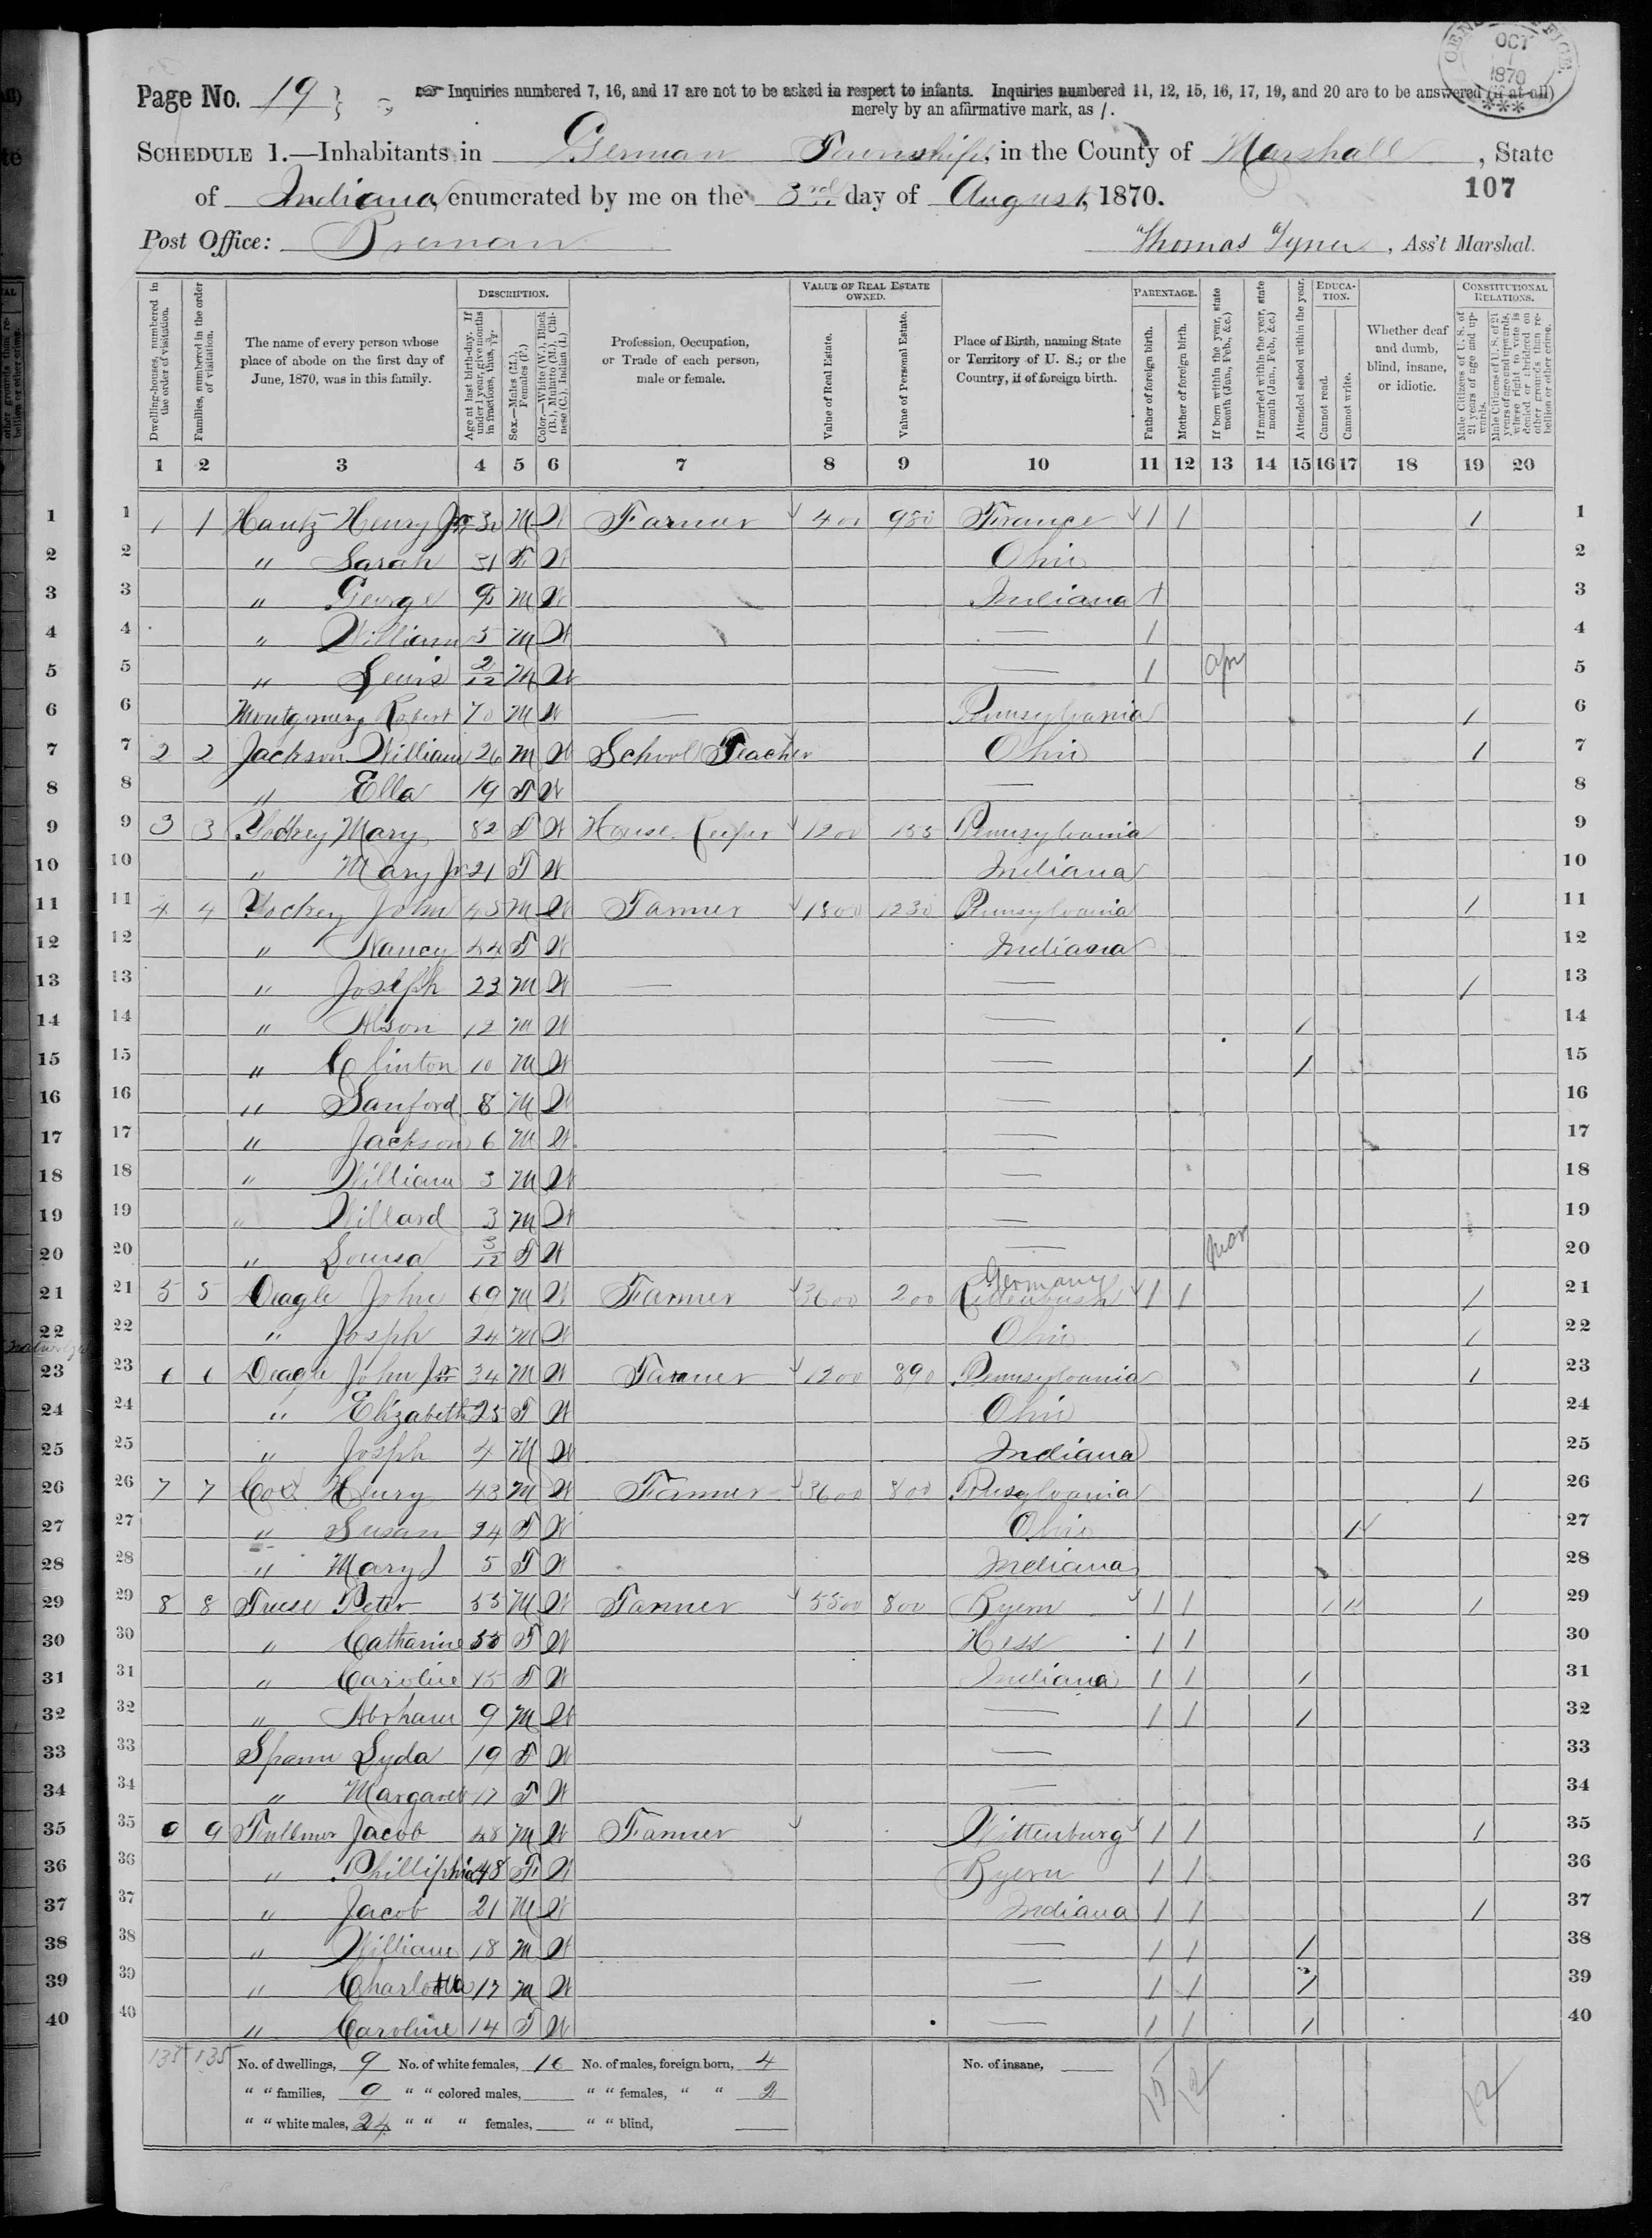 CENSUS OFFICE. OCT 1 1870 ***
Page No. 19
Inquiries numbered 7, 16, and 17 are not to be asked in respect to infants. Inquiries numbered 11, 12, 15, 16, 17, 19, and 20 are to be answered (if at all)
merely by an affirmative mark, as /.
SCHEDULE 1.—Inhabitants in German Township, in the County of Marshall, State
of Indiana, enumerated by me on the 3rd day of August, 1870.
107
Post Office: Breman
Thomas Tyner, Ass't Marshal.
Dwelling-houses, numbered in the order of visitation.
Families, numbered in the order of visitation.
The name of every person whose place of abode on the first day of June, 1870, was in this family.
DESCRIPTION.
Age at last birth-day. If under 1 year, give months in fractions, thus, 3/12.
Sex.—Males (M.), Females (F.)
Color.—White (W.), Black (B.), Mulatto (M.), Chinese (C.), Indian (I.)
Profession, Occupation, or Trade of each person, male or female.
VALUE OF REAL ESTATE OWNED.
Value of Real Estate.
Value of Personal Estate.
Place of Birth, naming State or Territory of U. S.; or the Country, if of foreign birth.
PARENTAGE.
Father of foreign birth.
Mother of foreign birth.
If born within the year, state month (Jan., Feb., &c.)
If married within the year, state month (Jan., Feb., &c.)
Attended school within the year.
EDUCATION.
Cannot read.
Cannot write.
Whether deaf and dumb, blind, insane, or idiotic.
CONSTITUTIONAL RELATIONS.
Male Citizens of U. S. of 21 years of age and upwards.
Male Citizens of U. S. of 21 years of age and upwards, whose right to vote is denied or abridged on other grounds than rebellion or other crime.
1 2 3 4 5 6 7 8 9 10 11 12 13 14 15 16 17 18 19 20
1 1 1 Hantz Henry Jr 30 M W Farmer 400 980 France 1 1 1 1
2 " Sarah 31 F W Ohio 2
3 " George 9 M W Indiana 1 3
4 " William 5 M W — 1 4
5 " Lewis 2/12 M W — 1 Apr 5
6 Montgomery Robert 70 M W — Pennsylvania 1 6
7 2 2 Jackson William 26 M W School Teacher Ohio 1 7
8 " Ella 19 F W — 8
9 3 3 Yockey Mary 82 F W House Keeper 1200 155 Pennsylvania 9
10 " Mary Jr 21 F W Indiana 10
11 4 4 Yockey John 45 M W Farmer 1800 1230 Pennsylvania 1 11
12 " Nancy 44 F W Indiana 12
13 " Joseph 23 M W — — 1 13
14 " Alson 12 M W — 1 14
15 " Clinton 10 M W — 1 15
16 " Sanford 8 M W — 16
17 " Jackson 6 M W — 17
18 " William 3 M W — 18
19 " Willard 3 M W — 19
20 " Lousa 3/12 F W — Mar 20
21 5 5 Deagle John 69 M W Farmer 3600 200 Germany 1 1 1 21
22 " Joseph 24 M W Ohio 1 22
23 6 6 Deagle John Jr 34 M W Farmer 1200 890 Pennsylvania 1 23
24 " Elizabeth 25 F W Ohio 24
25 " Joseph 4 M W Indiana 25
26 7 7 Cox Henry 43 M W Farmer 3600 800 Pensylvania 1 26
27 " Susan 24 F W Ohio 1 27
28 " Mary J 5 F W Indiana 28
29 8 8 Freese Peter 53 M W Farmer 5500 800 Byern 1 1 1 1 1 29
30 " Catharine 50 F W Hess 1 1 30
31 " Caroline 15 F W Indiana 1 1 1 31
32 " Abrham 9 M W — 1 1 1 32
33 Spann Lyda 19 F W — 33
34 " Margaret 17 F W — 34
35 9 9 Fullmer Jacob 48 M W Farmer Wittenburg 1 1 1 35
36 " Philliphia 48 F W Byern 1 1 36
37 " Jacob 21 M W Indiana 1 1 1 37
38 " William 18 M W — 1 1 1 38
39 " Charlotta 17 M W — 1 1 1 39
40 " Caroline 14 F W — 1 1 1 40
135 135 No. of dwellings, 9 No. of white females, 16 No. of males, foreign born, 4 No. of insane, 15 12 12
" " families, 9 " " colored males, " " females, " " 2
" " white males, 24 " " " females, " " blind,